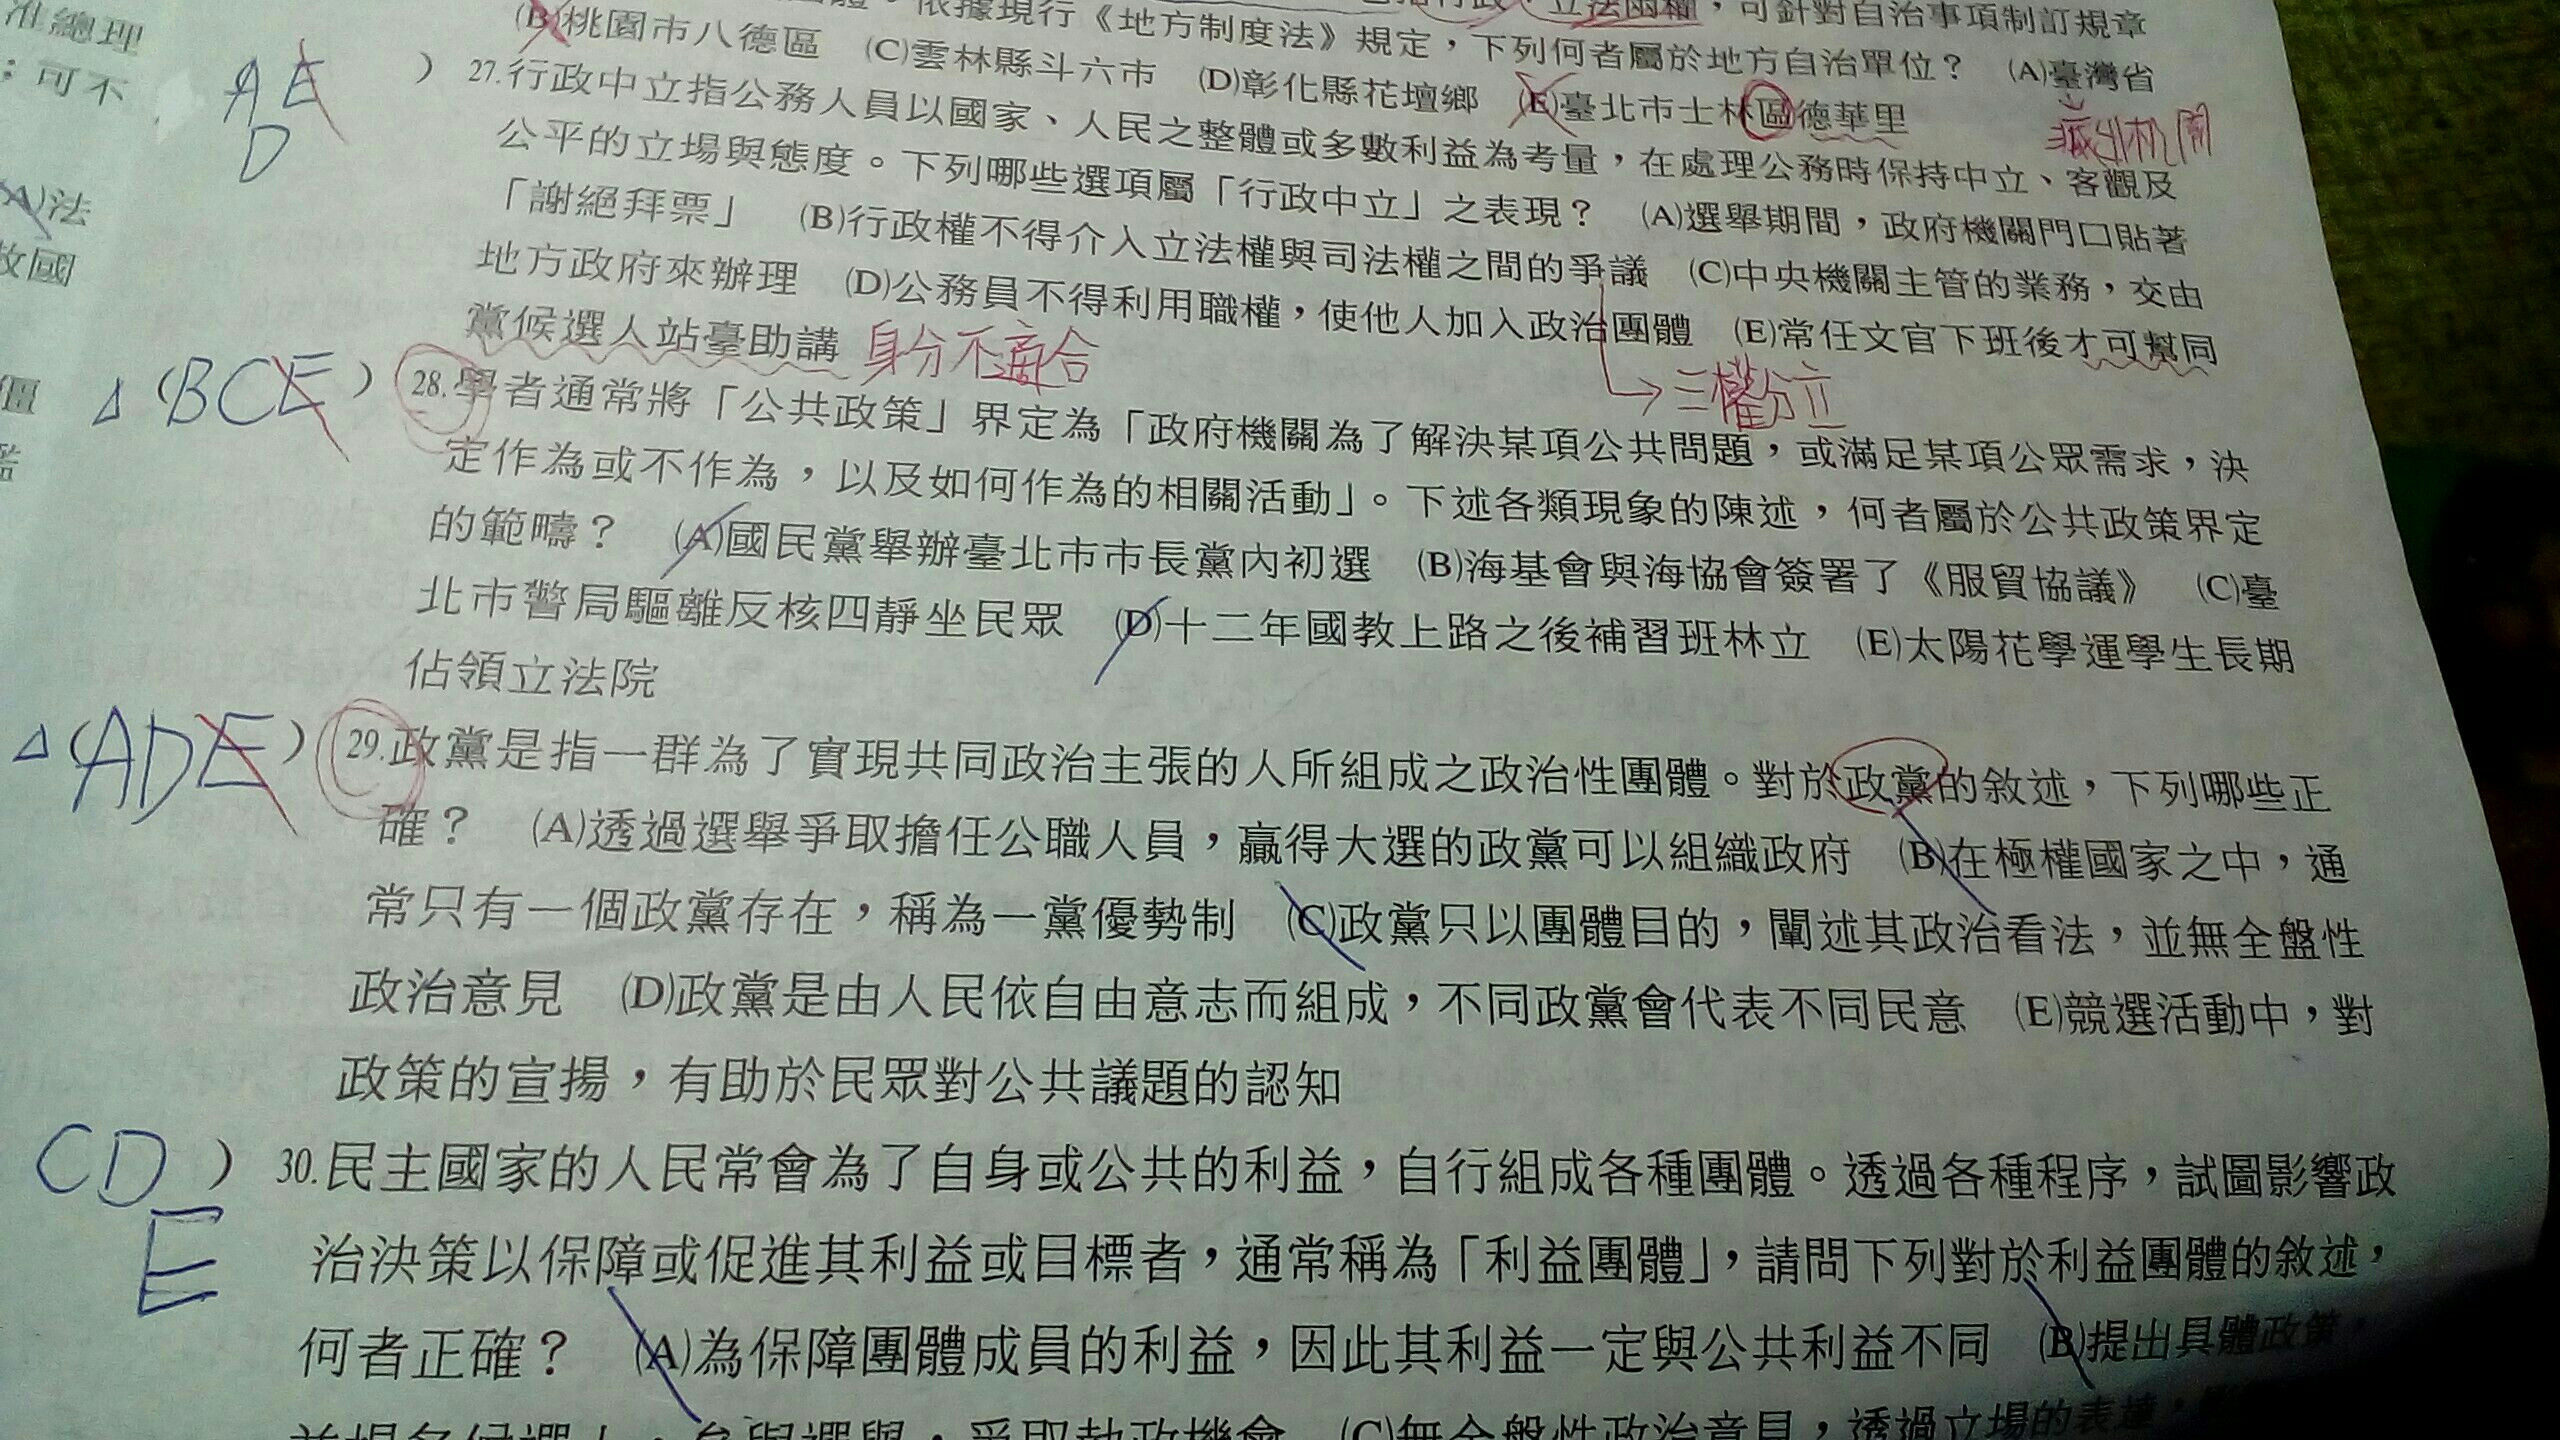 准總理
；可不
(A)法
政國
，依據現行《地方制度法》規定，下列何者屬於地方自治單位？ (A)臺灣省
立法兩權，可針對自治事項制訂規章
(B)桃園市八德區 (C)雲林縣斗六市 (D)彰化縣花壇鄉 (E)臺北市士林區德華里
AE
D
) 27.行政中立指公務人員以國家、人民之整體或多數利益為考量，在處理公務時保持中立、客觀及
公平的立場與態度。下列哪些選項屬「行政中立」之表現？ (A)選舉期間，政府機關門口貼著
「謝絕拜票」 (B)行政權不得介入立法權與司法權之間的爭議 (C)中央機關主管的業務，交由
地方政府來辦理 (D)公務員不得利用職權，使他人加入政治團體 (E)常任文官下班後才可幫同
黨候選人站臺助講 身分不適合
三權分立
△(BCE) 28.學者通常將「公共政策」界定為「政府機關為了解決某項公共問題，或滿足某項公眾需求，決
定作為或不作為，以及如何作為的相關活動」。下述各類現象的陳述，何者屬於公共政策界定
的範疇？ (A)國民黨舉辦臺北市市長黨內初選 (B)海基會與海協會簽署了《服貿協議》 (C)臺
北市警局驅離反核四靜坐民眾 (D)十二年國教上路之後補習班林立 (E)太陽花學運學生長期
佔領立法院
△(ADE) 29.政黨是指一群為了實現共同政治主張的人所組成之政治性團體。對於政黨的敘述，下列哪些正
確？ (A)透過選舉爭取擔任公職人員，贏得大選的政黨可以組織政府 (B)在極權國家之中，通
常只有一個政黨存在，稱為一黨優勢制 (C)政黨只以團體目的，闡述其政治看法，並無全盤性
政治意見 (D)政黨是由人民依自由意志而組成，不同政黨會代表不同民意 (E)競選活動中，對
政策的宣揚，有助於民眾對公共議題的認知
CD
E
) 30.民主國家的人民常會為了自身或公共的利益，自行組成各種團體。透過各種程序，試圖影響政
治決策以保障或促進其利益或目標者，通常稱為「利益團體」，請問下列對於利益團體的敘述，
何者正確？ (A)為保障團體成員的利益，因此其利益一定與公共利益不同 (B)提出具體政策，
並提名候選人，參與選舉，爭取執政機會 (C)無全盤性政治意見，透過立場的表達，